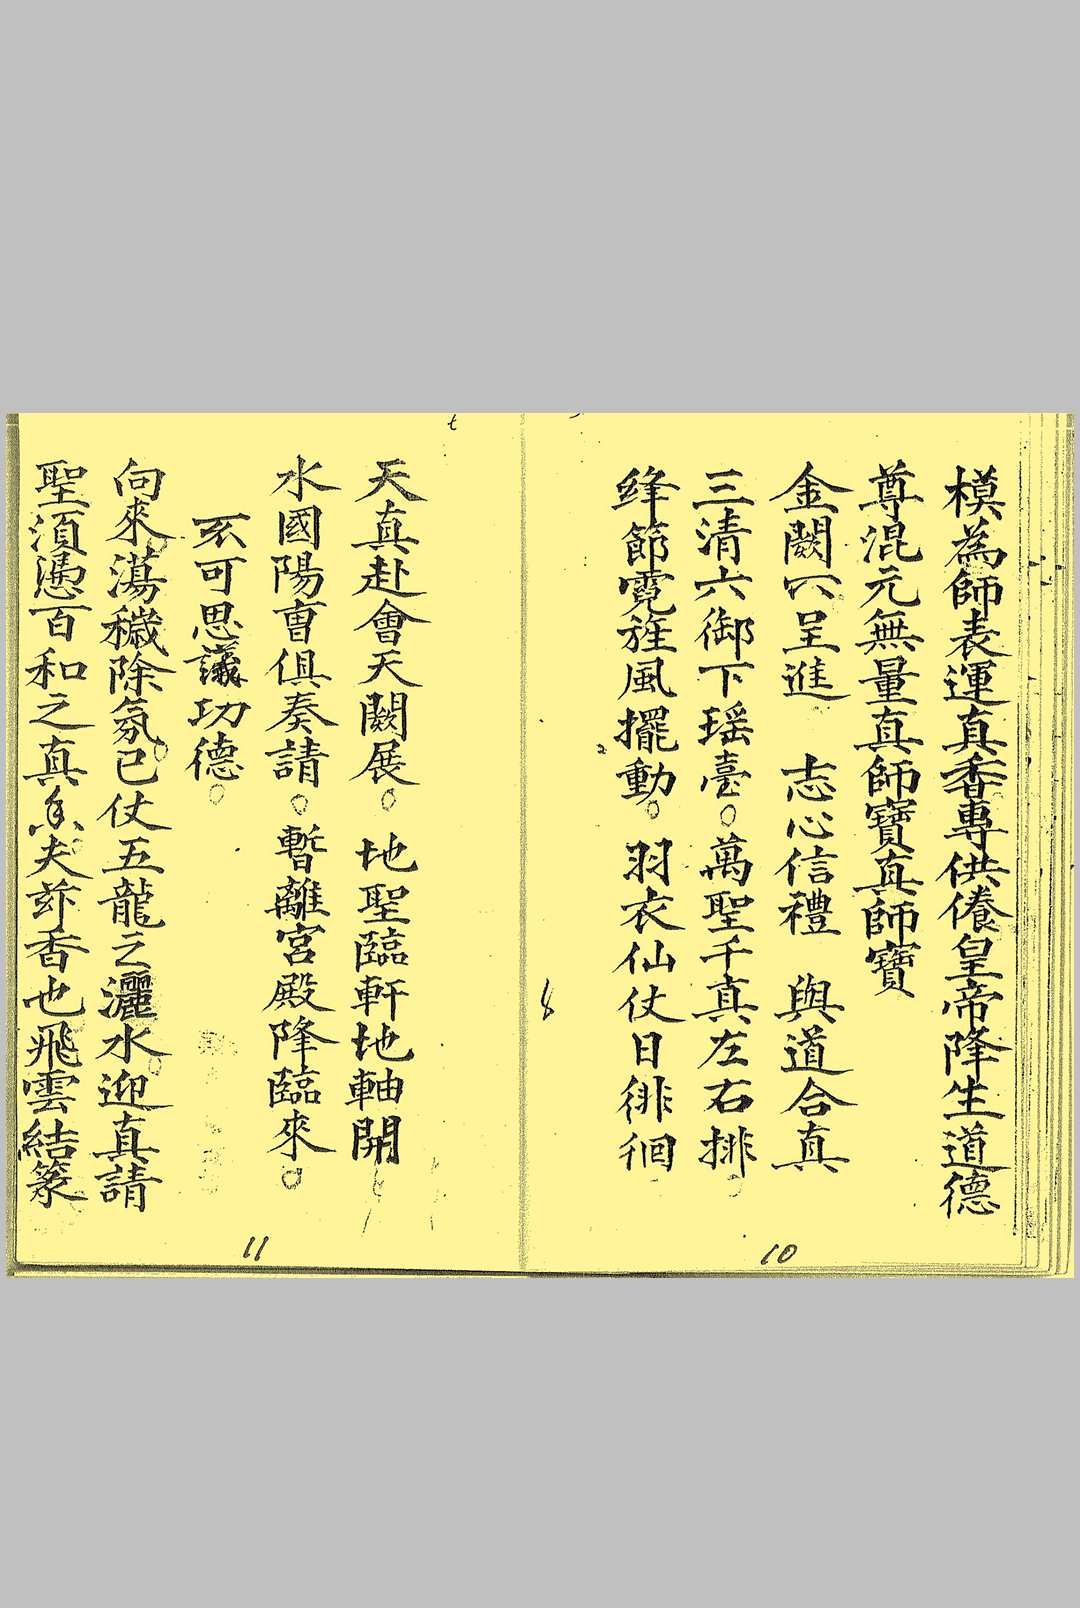 模為師表運真香專供養皇帝降生道德
尊混元無量真師寶真師寶
金闕六呈進　志心信禮　與道合真
三清六御下瑶臺○萬聖千真左右排
絳節霓旌風擺動○羽衣仙仗日徘徊
10
天真赴會天闕展○地聖臨軒地軸開
水國陽曺俱奏請○暫離宮殿降臨來○
不可思議功德○
向來蕩穢除氛已仗五龍之灑水迎真請
聖須憑百和之真香夫茲香也飛雲結篆
11
8